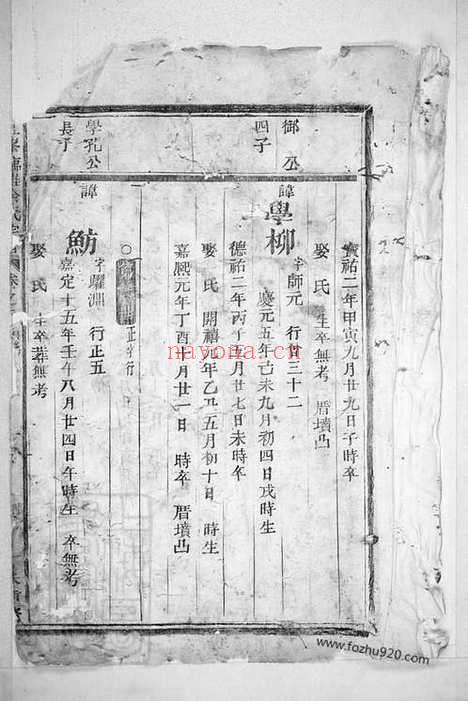 寶祐二年甲寅九月廿九日子時卒
娶 氏 生卒無考 厝墳凸
御 公
四子
諱學柳 字師元 行廿三十二
慶元五年己未九月初四日戌時生
德祐二年丙子五月廿七日未時卒
娶 氏 開禧元年乙丑五月初十日 時生
嘉熙元年丁酉十月廿一日 時卒 厝墳凸
正 行
學孔公
長子
諱魴 字躍淵 行正五
嘉定十五年壬午八月廿四日午時生 卒無考
娶 氏 生卒葬無考
nayona.cn
www.fozhu920.com